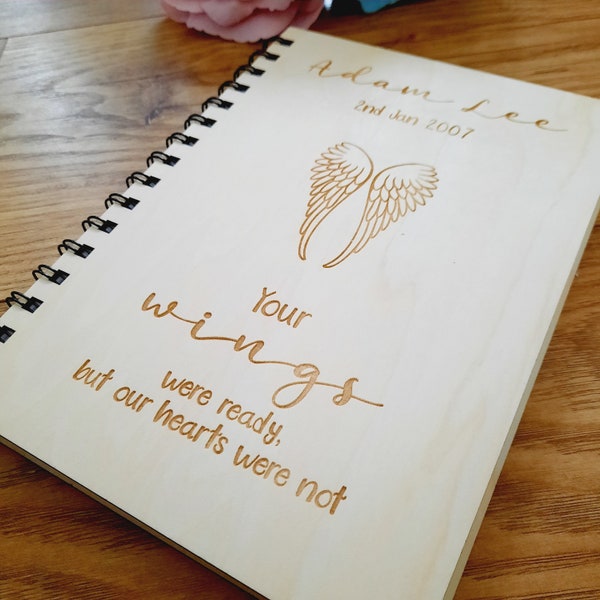 Adam Lee
2nd Jan 2007
Your
wings
were ready,
but our hearts were not